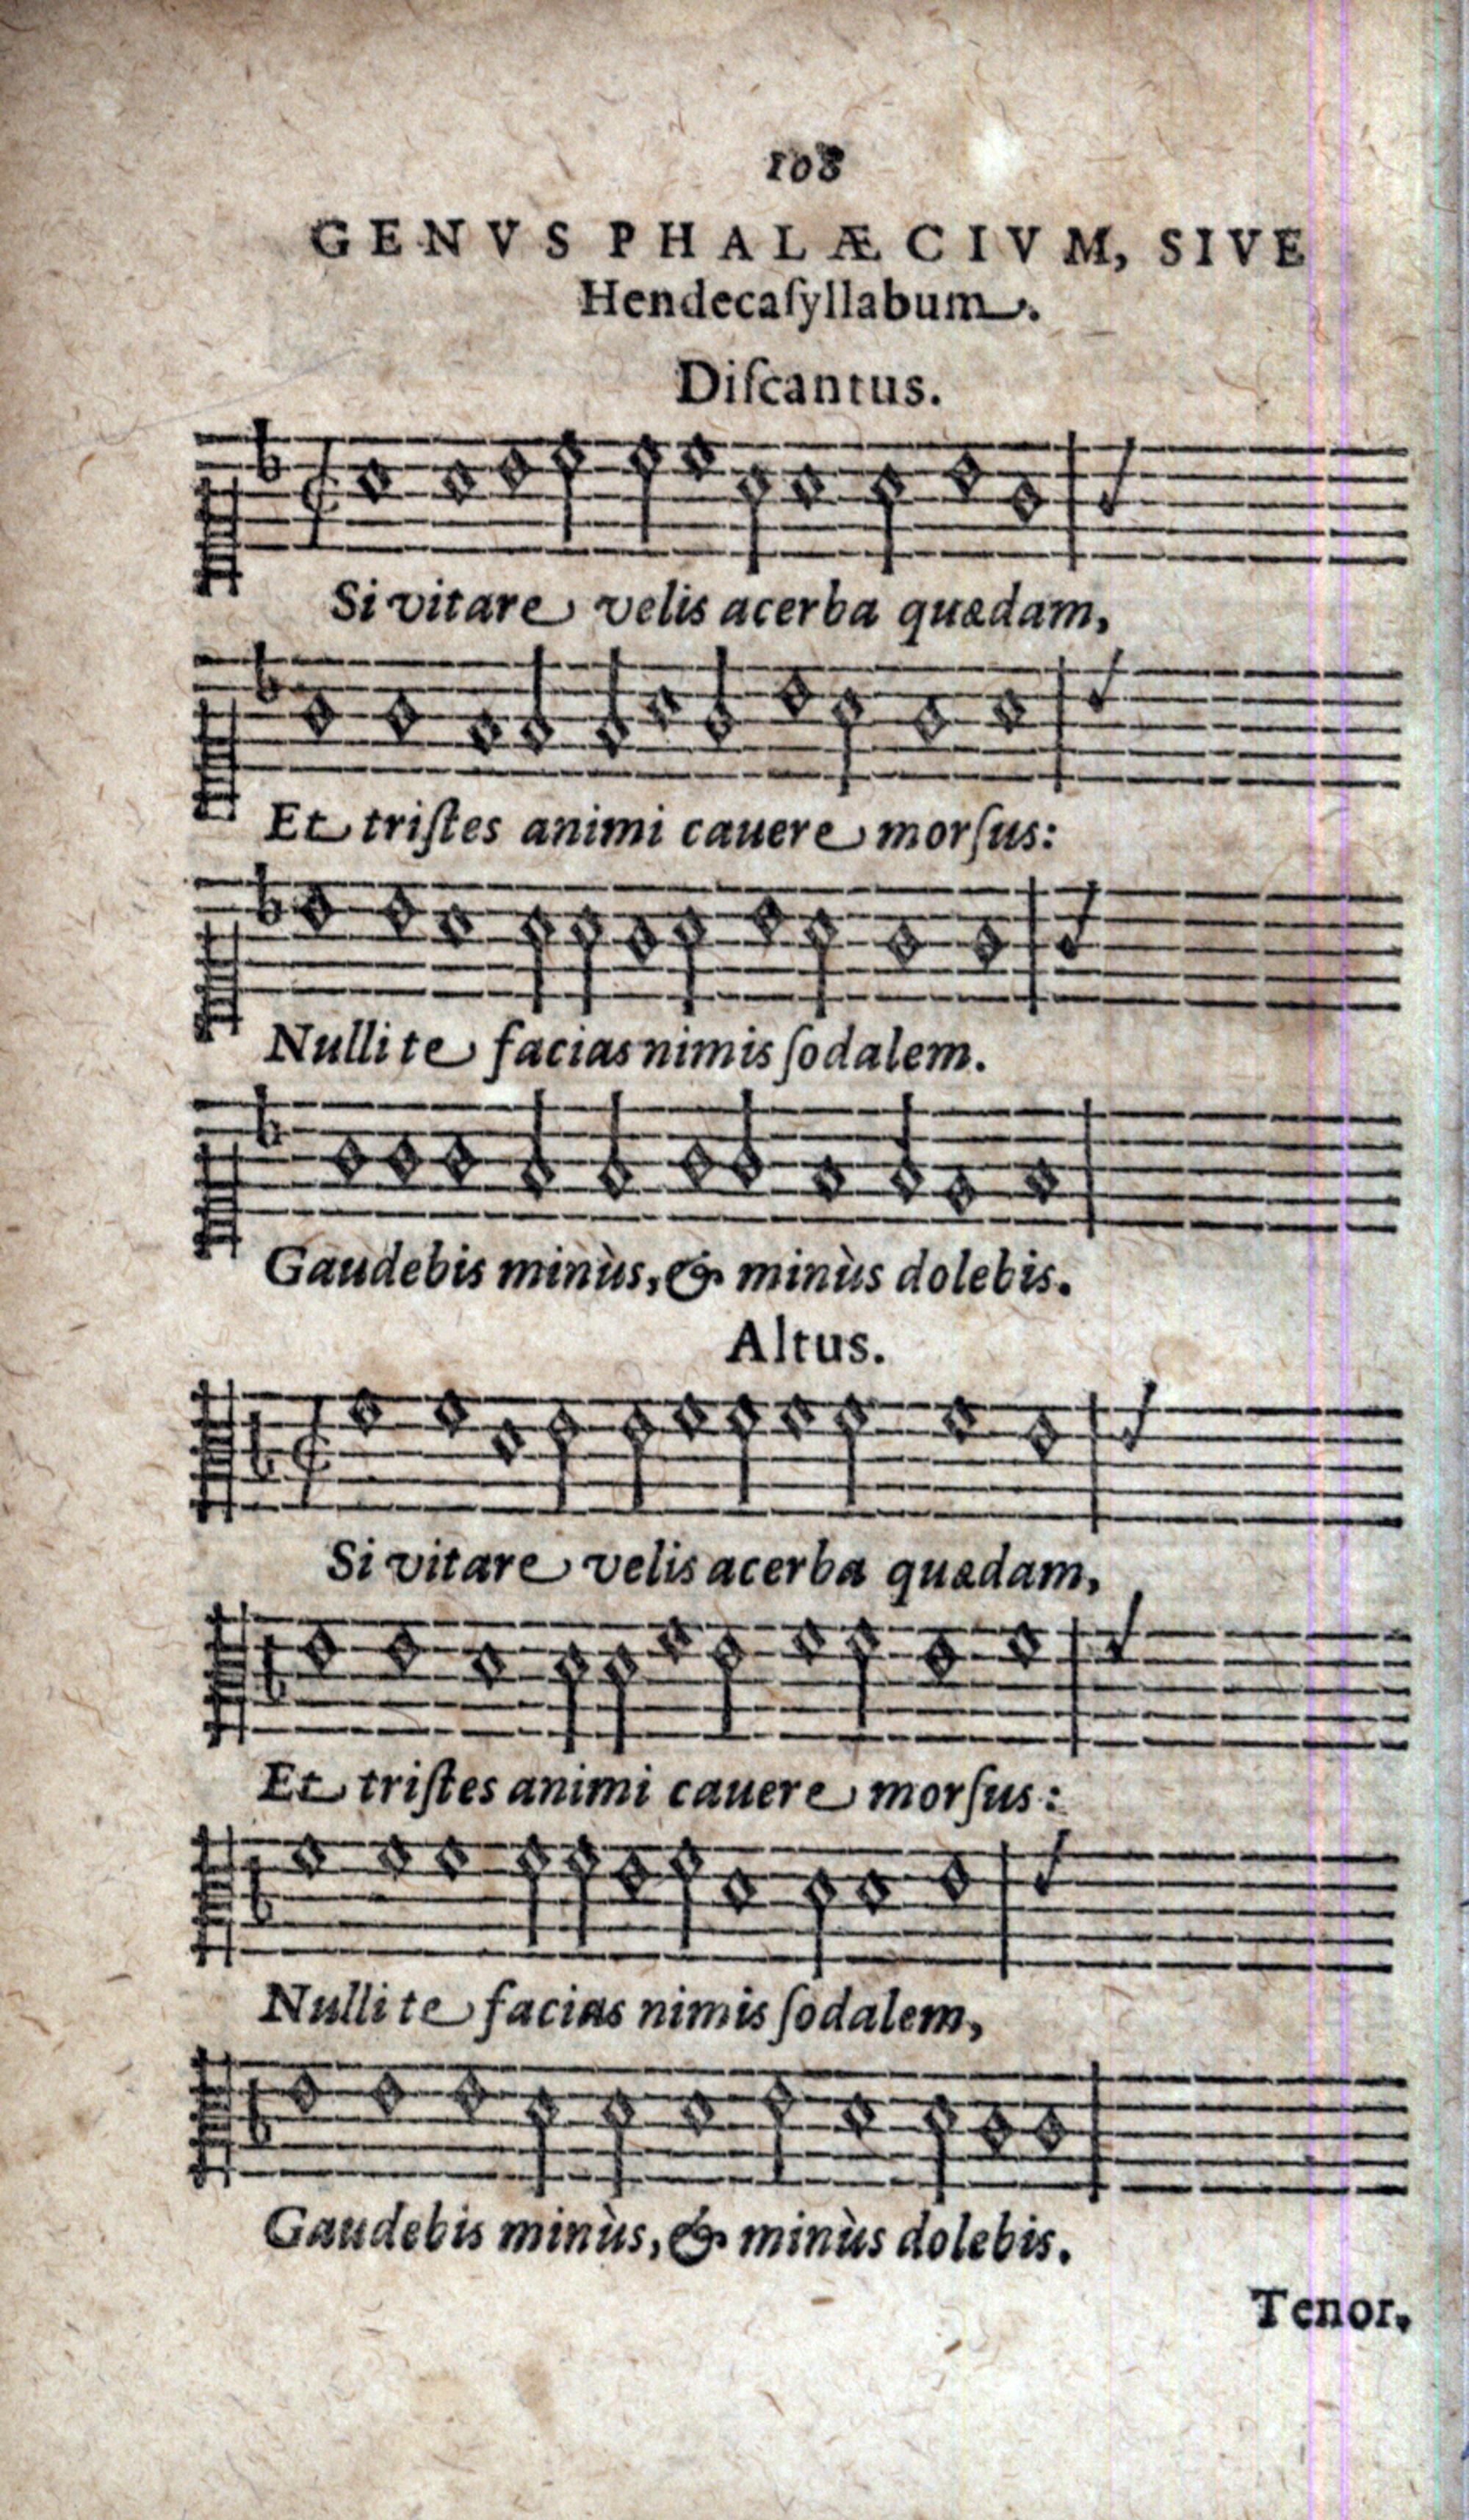 108
GENVS PHALÆCIVM, SIVE
Hendecaſyllabum.
Diſcantus.
Si vitare velis acerba quædam,
Et triſtes animi cauere morſus:
Nulli te facias nimis ſodalem.
Gaudebis minùs, & minùs dolebis.
Altus.
Si vitare velis acerba quædam,
Et triſtes animi cauere morſus:
Nulli te facias nimis ſodalem,
Gaudebis minùs, & minùs dolebis.
Tenor.